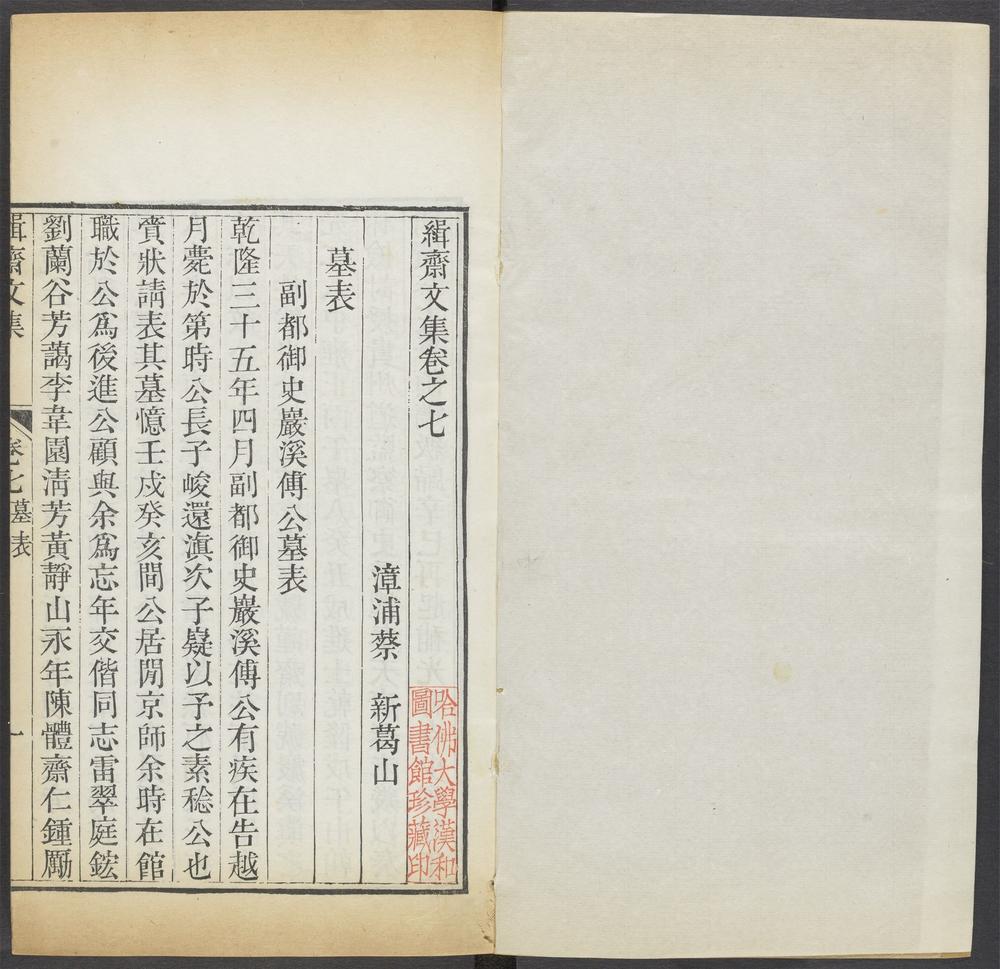 緝齋文集卷之七
漳浦蔡 新葛山
哈佛大學漢和圖書館珍藏印
墓表
副都御史巖溪傅公墓表
乾隆三十五年四月副都御史巖溪傅公有疾在告越
月薨於第時公長子峻還滇次子嶷以予之素稔公也
賫狀請表其墓憶壬戌癸亥間公居閒京師余時在館
職於公爲後進公顧與余爲忘年交偕同志雷翠庭鋐
劉蘭谷芳藹李韋園清芳黃靜山永年陳體齋仁鍾勵
緝齋文集 卷七墓表 一